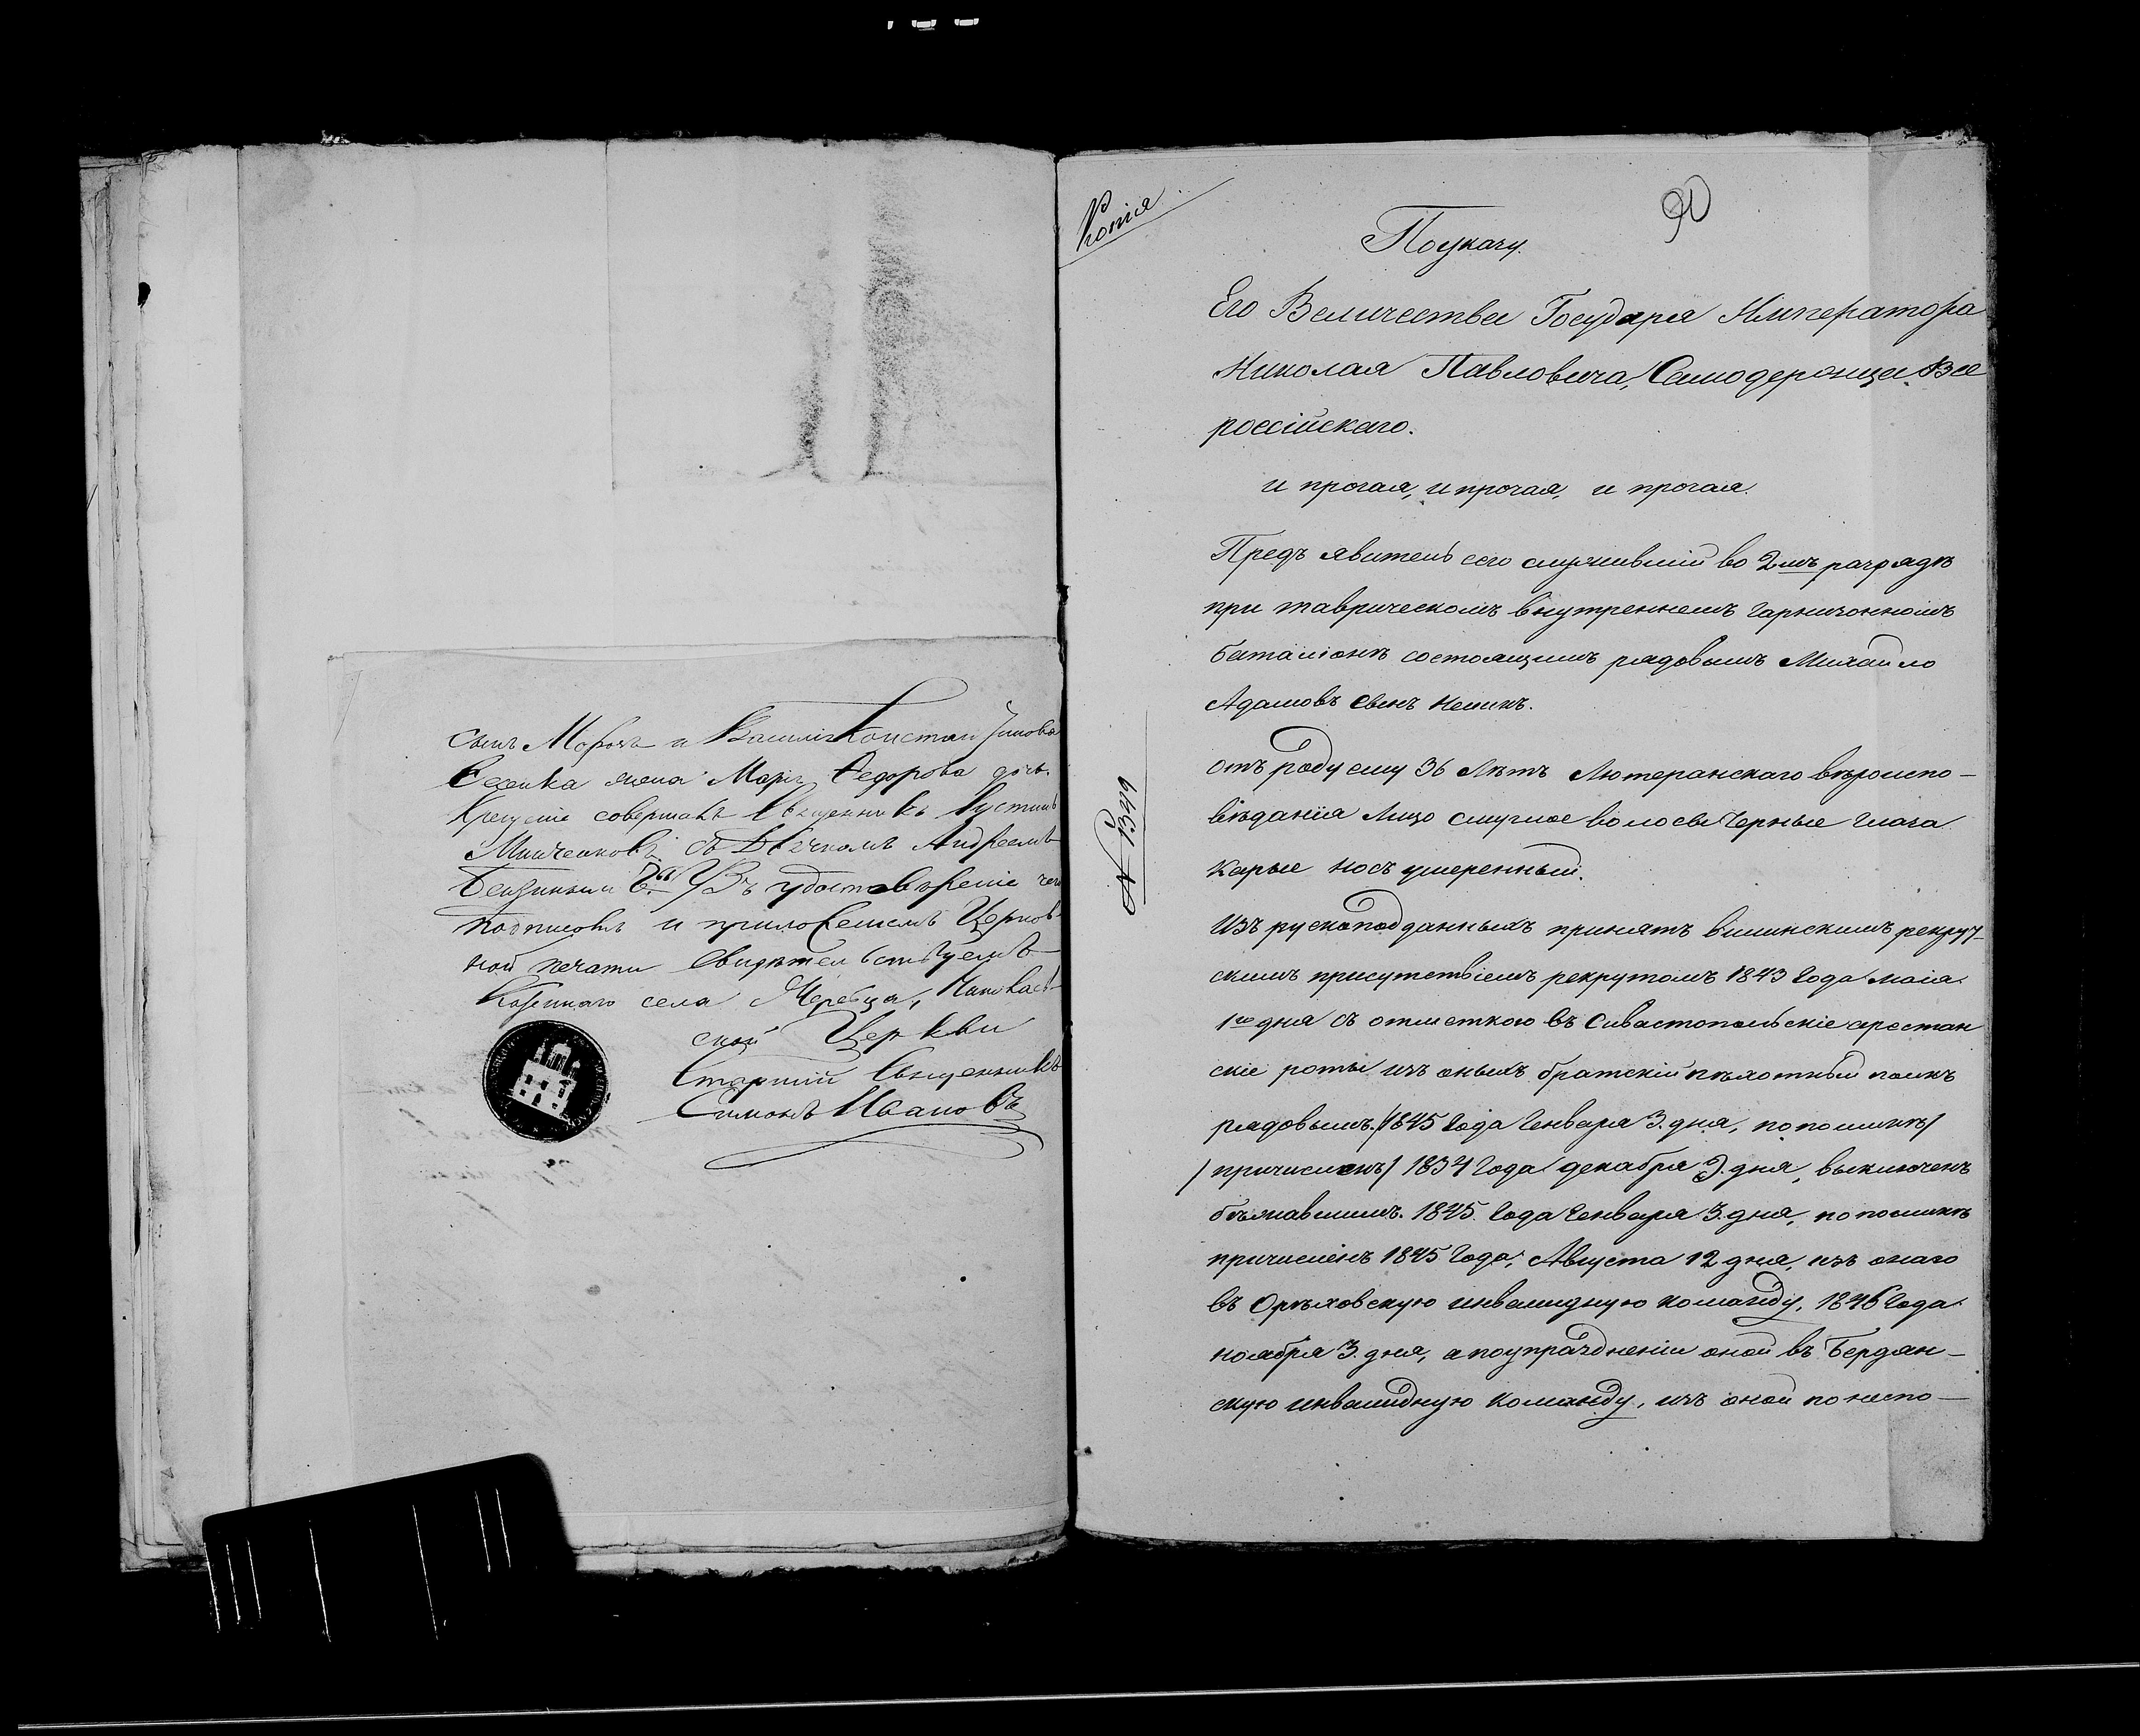 сынъ Морозъ и Василія Константинова
жена Марія Федорова дочь.
Крещеніе совершалъ Священникъ Іустинъ
съ Дьячкомъ Андреемъ
Въ удостовѣреніе чего
подписомъ и приложеніемъ Церков-
ной печати Свидѣтельствуемъ
села Жеребца,
ской Церкви
Старшій Священникъ
Симонъ Ивановъ
Копія
90
По указу.
Его Величества Государя Императора
Николая Павловича, Самодержца Все
россійскаго.
и прочая, и прочая, и прочая.
Предъ явитель сего служившій во 2мъ разрядѣ
при таврическомъ внутреннемъ гарнизонномъ
баталіонѣ состоящимъ рядовымъ Михайло
Адамовъ сынъ
отъ роду ему 36 Лѣтъ Лютеранскаго вѣроиспо-
вѣданія Лицо смуглое волосы Черные глаза
карые носъ умеренный.
№ 1344
Изъ рускоподданныхъ принятъ виленскимъ рекрут-
скимъ присутствіемъ рекрутомъ 1843 года маія
1го дня съ отметкою въ Сивастопольскіе арестан
скіе роты изъ оныхъ братскій пѣхотный полкъ
рядовымъ. /1845 года Генваря 3. дня, по полику/
/причисленъ/ 1834 года декабря 9. дня, выключенъ
бѣжавшимъ. 1845. года Генваря 3. дня, по полику
причисленъ 1845 года, Августа 12 дня, изъ онаго
въ Орѣховскую инвалидную команду, 1846 года
ноября 3. дня, а по упразднении оной въ Бердян-
скую инвалидную команду, изъ оной по неспо-